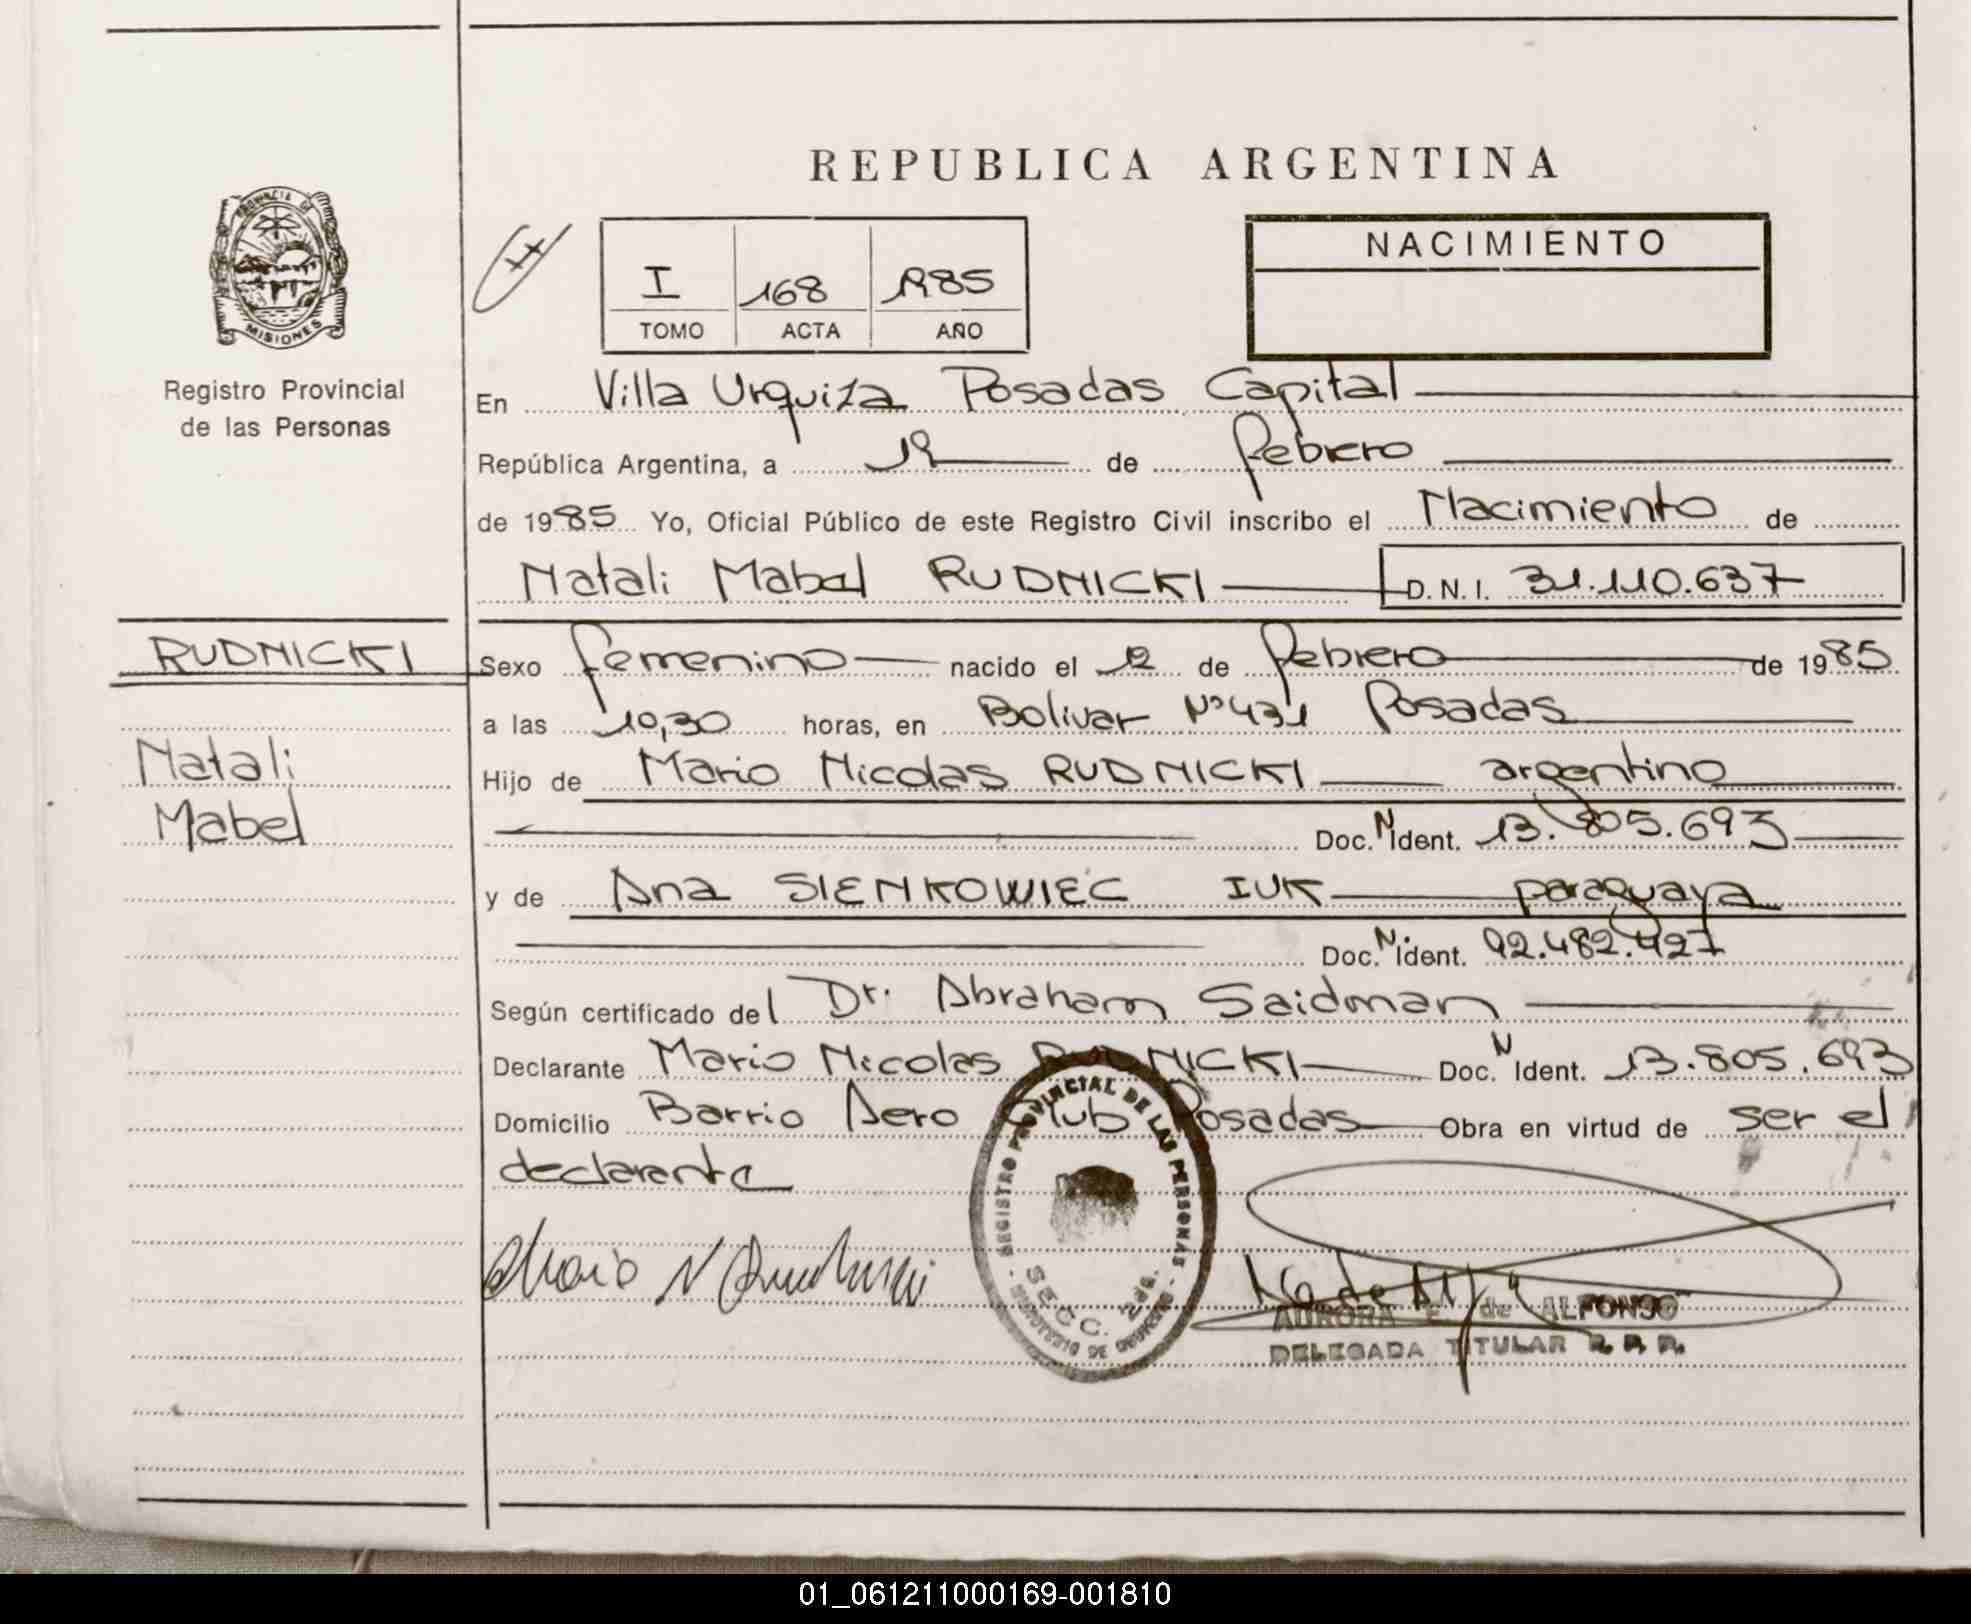 REPUBLICA ARGENTINA
PROVINCIA DE
MISIONES
Registro Provincial
de las Personas
I 168 1985
TOMO ACTA AÑO
NACIMIENTO
En Villa Urquiza Posadas Capital
República Argentina, a de febrero
de 1985 Yo, Oficial Público de este Registro Civil inscribo el Nacimiento de
Natali Mabel RUDNICKI D.N.I. 31.110.637
RUDNICKI
Natali
Mabel
Sexo femenino nacido el 12 de febrero de 1985
a las 10,30 horas, en Bolivar Nº 431 Posadas
Hijo de Mario Nicolas RUDNICKI argentino
Doc. N Ident. 13.805.693
y de Ana SIENKOWIEC IUK paraguaya
Doc. N Ident. 92.482.427
Según certificado del Dr. Abraham Saidman
Declarante Mario Nicolas RUDNICKI Doc. N Ident. 13.805.693
Domicilio Barrio Aero Club Posadas Obra en virtud de ser el
declarante
REGISTRO PROVINCIAL DE LAS PERSONAS
SECC. 2da.
AURORA E. de ALFONSO
DELEGADA TITULAR R. P. P.
01_061211000169-001810